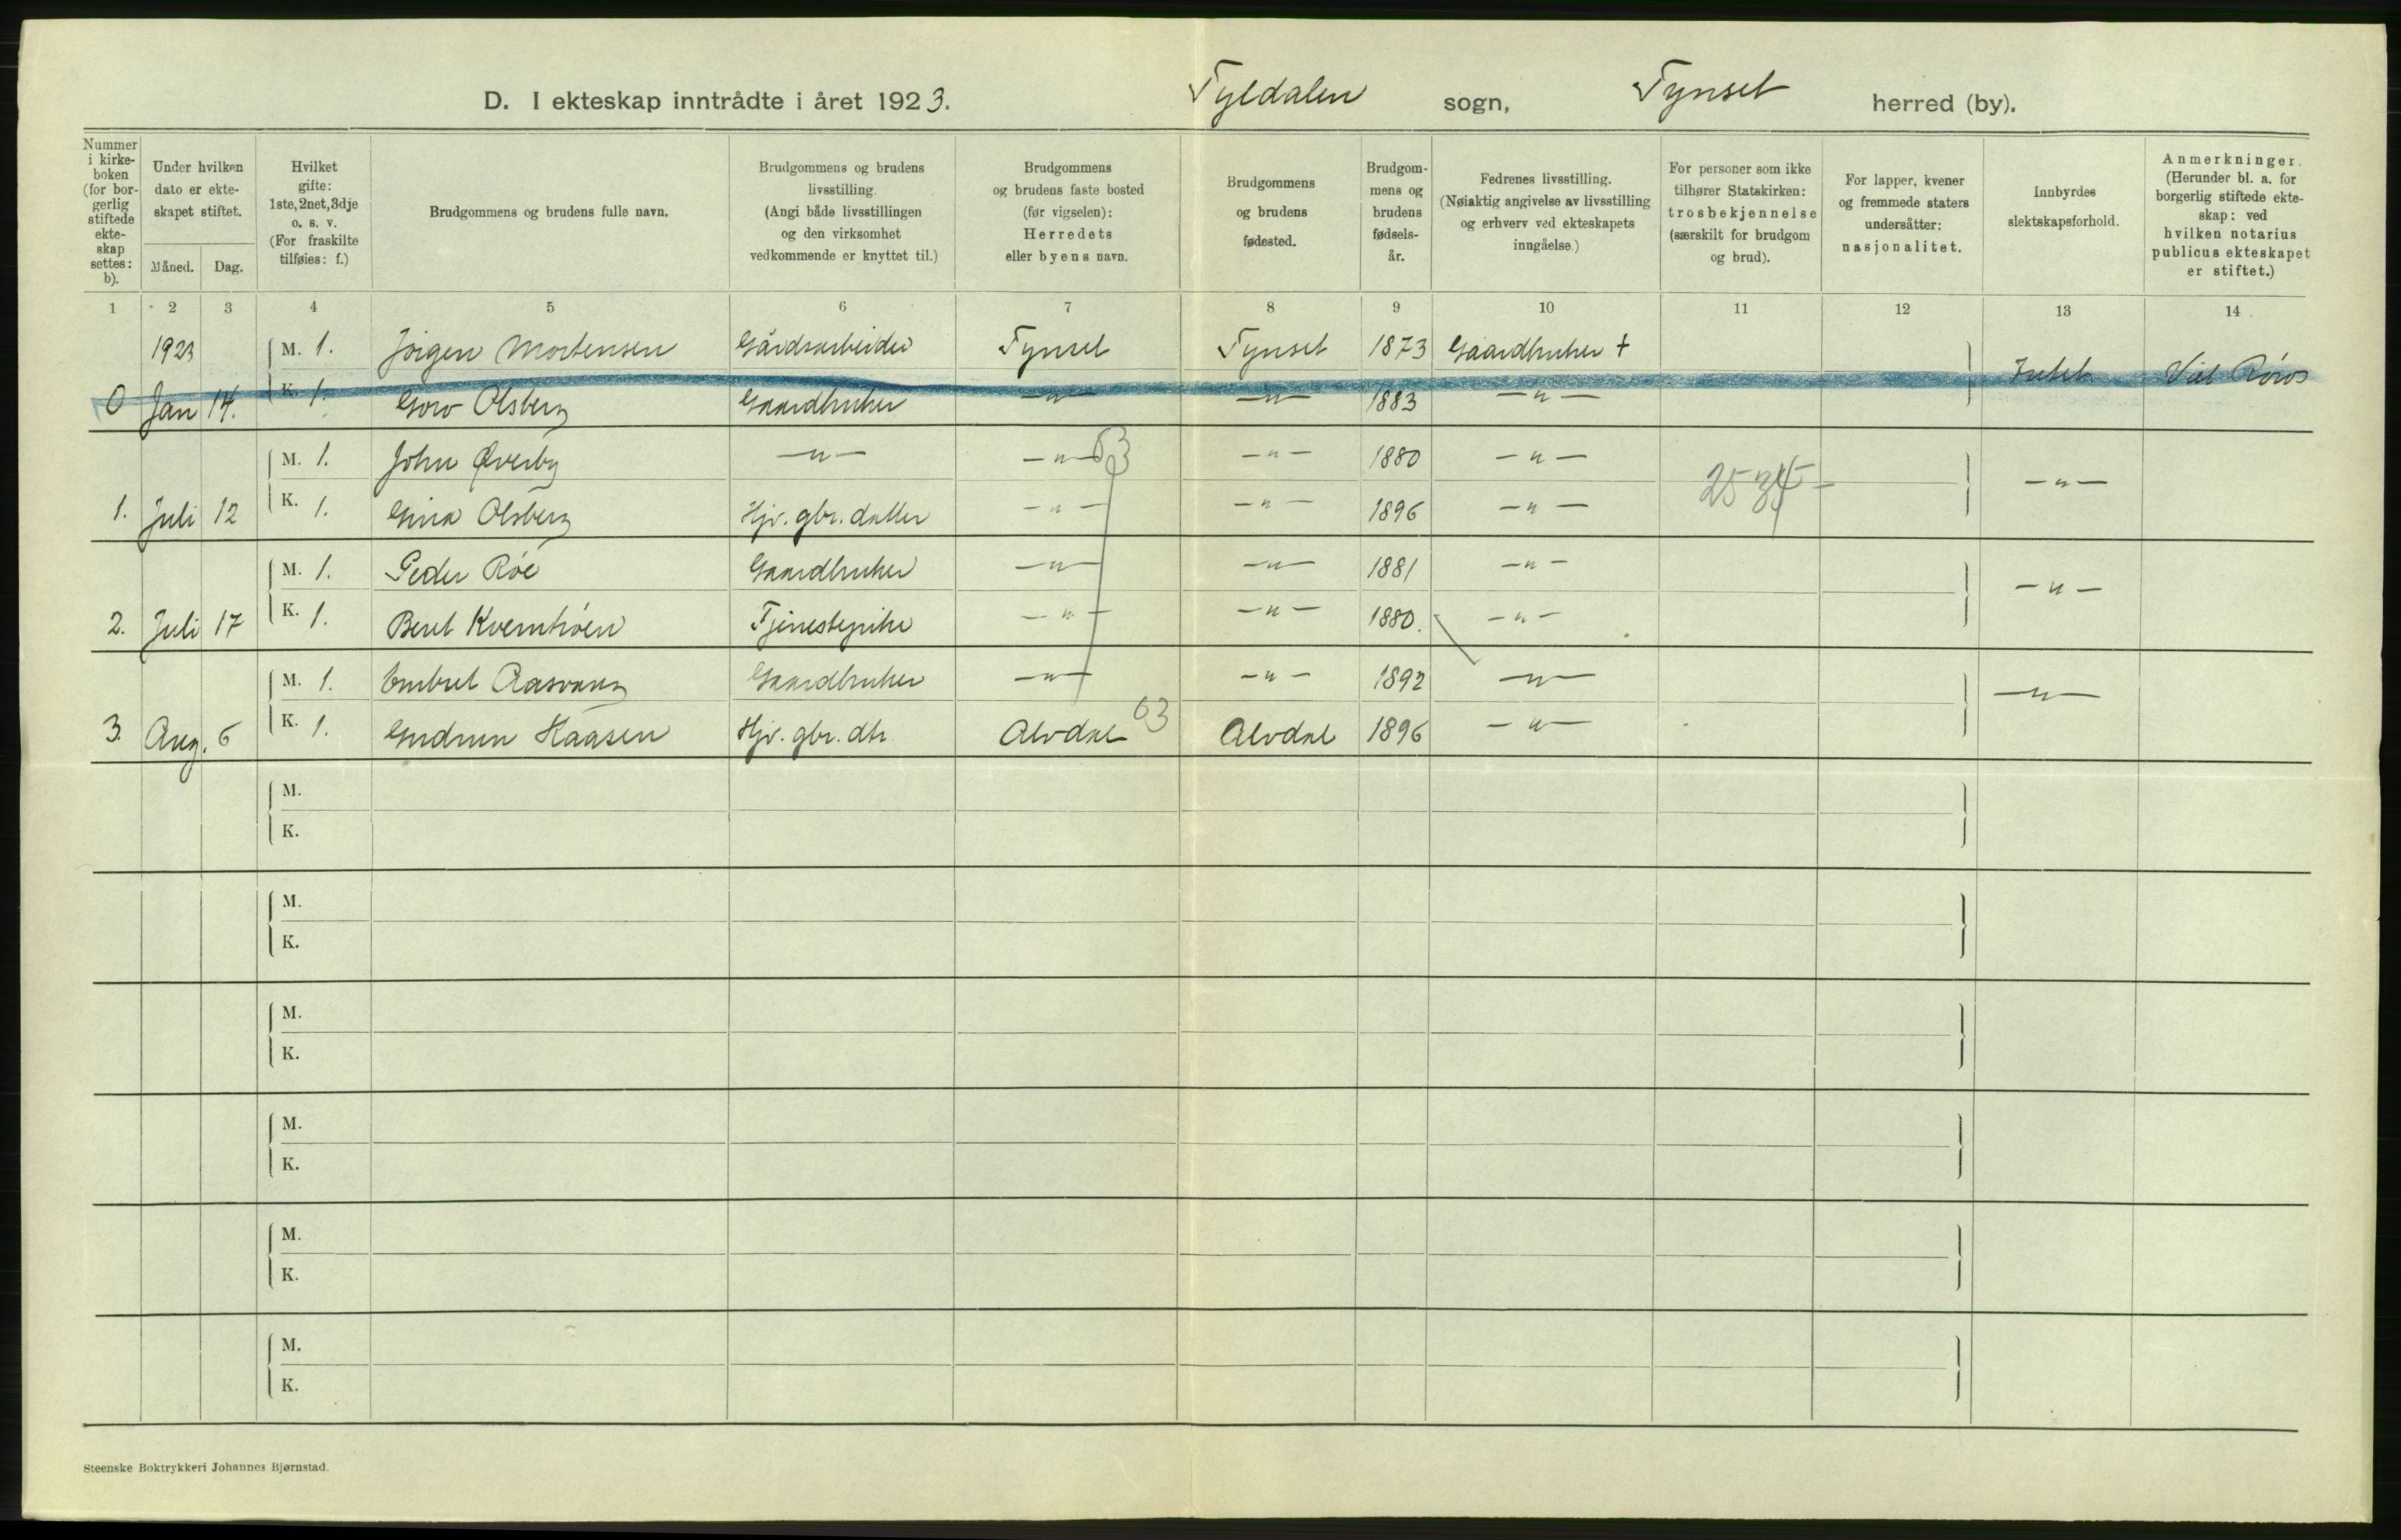 D. I ekteskap inntrådte i året 1923. Tyldalen sogn, Tynset herred (by).
Nummer i kirkeboken (for borgerlig stiftede ekteskap settes: b).
Under hvilken dato er ekteskapet stiftet.
Måned. Dag.
Hvilket gifte: 1ste, 2net, 3dje o. s. v. (For fraskilte tilføies: f.)
Brudgommens og brudens fulle navn.
Brudgommens og brudens livsstilling. (Angi både livsstillingen og den virksomhet vedkommende er knyttet til.)
Brudgommens og brudens faste bosted (før vigselen): Herredets eller byens navn.
Brudgommens og brudens fødested.
Brudgommens og brudens fødselsår.
Fedrenes livsstilling. (Nøiaktig angivelse av livsstilling og erhverv ved ekteskapets inngåelse.)
For personer som ikke tilhører Statskirken: trosbekjennelse (særskilt for brudgom og brud).
For lapper, kvener og fremmede staters undersåtter: nasjonalitet.
Innbyrdes slektskapsforhold.
Anmerkninger. (Herunder bl. a. for borgerlig stiftede ekteskap: ved hvilken notarius publicus ekteskapet er stiftet.)
1 2 3 4 5 6 7 8 9 10 11 12 13 14
1923 M. 1. Jörgen Mortensen Gårdsarbeider Tynset Tynset 1873 Gaardbruker +
0 Jan 14. K. 1. Goro Olsberg Gaardbruker —"— —"— 1883 —"— Intet Viet Röros
M. 1. John Øverby —"— —"— 63 —"— 1880 —"—
1. Juli 12 K. 1. Gina Olsberg Hjv. gbr. datter —"— —"— 1896 —"— —"—
M. 1. Peder Röe Gaardbruker —"— —"— 1881 —"—
2. Juli 17 K. 1. Beret Kvernhöen Tjenestepike —"— —"— 1880. —"— —"—
M. 1. Embret Aasvang Gaardbruker —"— —"— 1892 —"—
3. Aug. 6 K. 1. Gudrun Haasen Hjv. gbr. dtr. Alvdal 63 Alvdal 1896 —"— —"—
M.
K.
M.
K.
M.
K.
M.
K.
M.
K.
M.
K.
Steenske Boktrykkeri Johannes Bjørnstad.